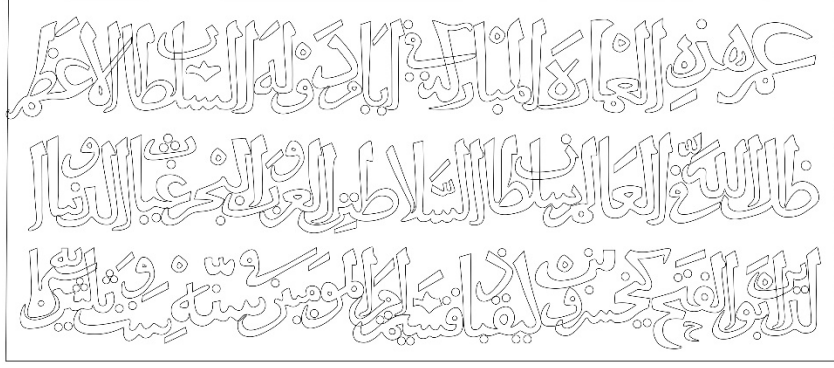 عمر هذه العمارة المباركة في ايام دولة السلطان الاعظم
ظل الله في العالم سلطان السلاطين العرب و العجم غياث الدنيا و ا
لدين ابو الفتح كيخسرو بن كيقباد قسيم امير المومنين سنة ست و ثلثين